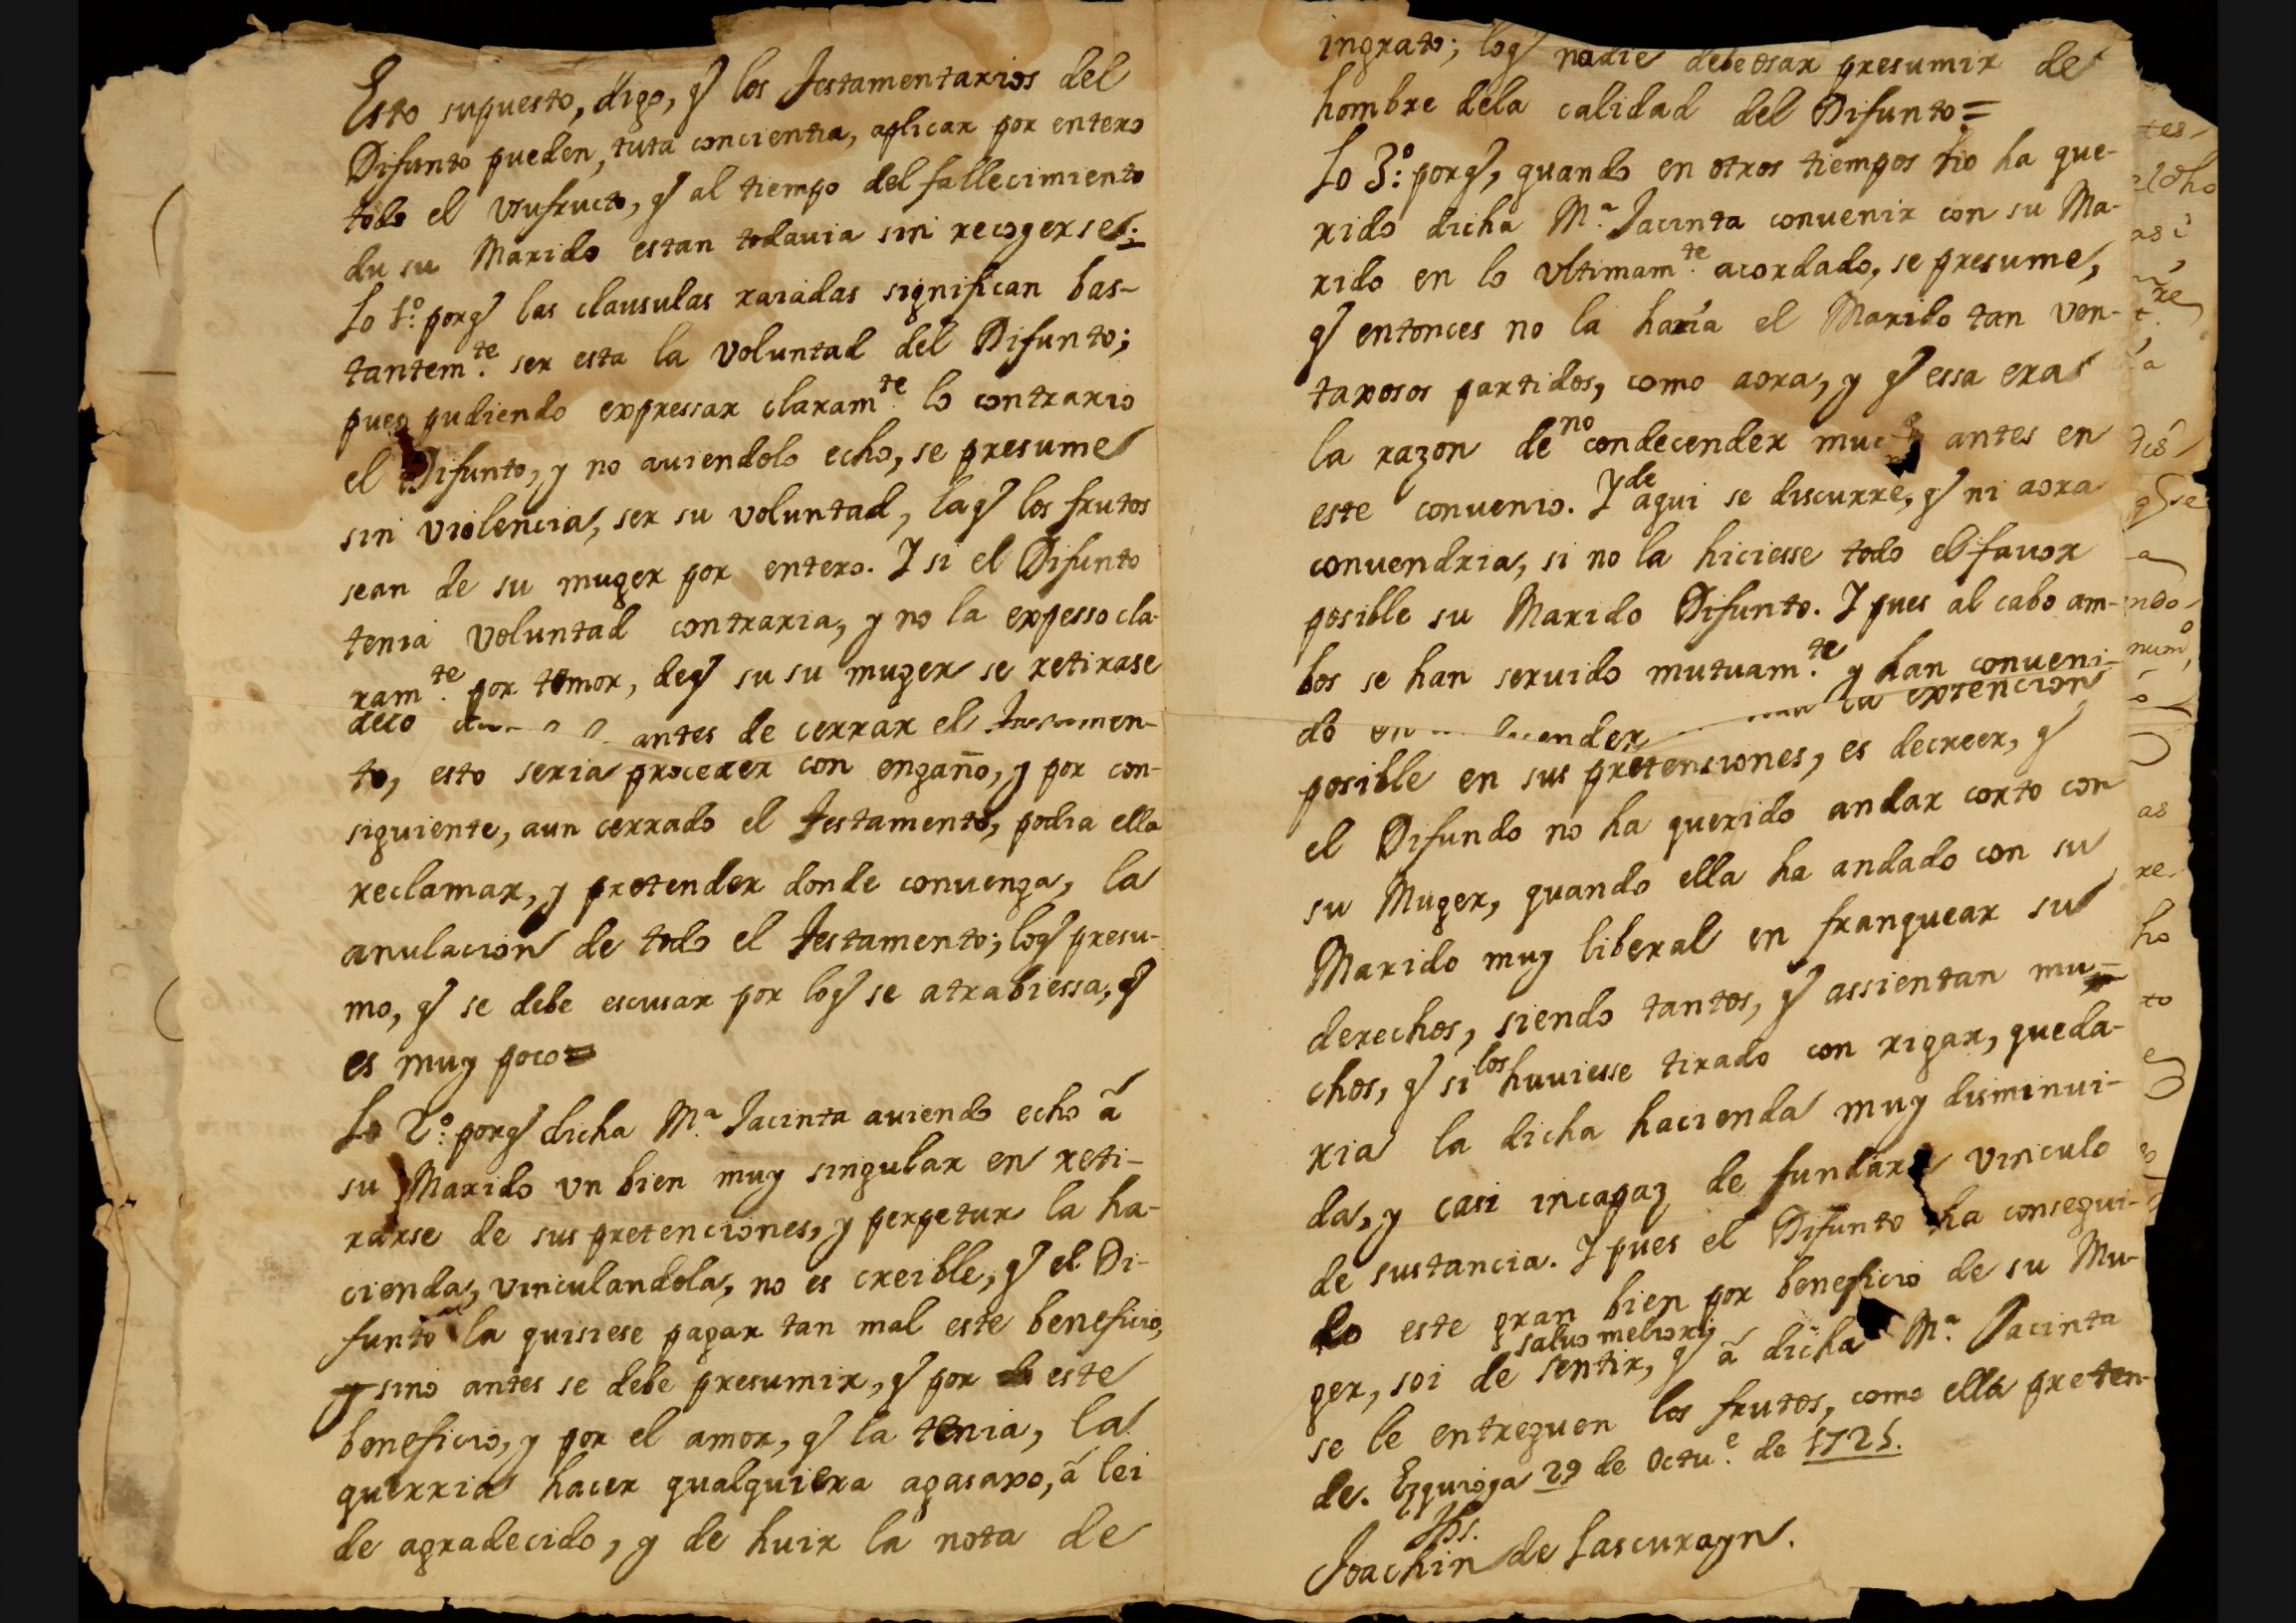 Esto supuesto, digo, q los Testamentarios del
Difunto pueden, tuta concientia, aplicar por entero
todo el Vsufructo, q al tiempo del fallecimiento
du su Marido estan todauia sin recogerse;
Lo 1º porq las clausulas raiadas significan bas-
tantem.te ser esta la Voluntad del Difunto;
pues pudiendo expressar claram.te lo contrario
el Difunto, y no auiendolo echo, se presume
sin violencia, ser su voluntad, laq los frutos
sean de su muger por entero. I si el Difunto
tenia Voluntad contraria, y no la expesso cla-
ram.te por temor, deq su su muger se retirase
antes de cerrar el
to, esto seria proceder con engaño, y por con-
siguiente, aun cerrado el Testamento, podia ella
reclamar, y pretender donde conuenga, la
anulacion de todo el Testamento; loq presu-
mo, q se debe escusar por loq se atrabiessa, q
es muy poco=
Lo 2º porq dicha M.ª Jacinta auiendo echo â
su Marido vn bien muy singular en reti-
rarse de sus pretenciones, y perpetur la ha-
cienda, vinculandola, no es creible, q el Di-
funto la quisiese pagar tan mal este beneficio,
sino antes se debe presumir, q por este
beneficio, y por el amor, q la tenia, la
querria hacer qualquiera agasaxo, â lei
de agradecido, y de huir la nota de
ingrato; loq nadie debe osar presumir de
hombre dela calidad del Difunto=
Lo 3º porq, quando en otros tiempos no ha que-
rido dicha M.ª Jacinta conuenir con su Ma-
rido en lo vltimam.te acordado, se presume,
q entonces no la haria el Marido tan ven-
taxosos partidos, como aora, y q essa era
la razon de no condecender antes en
este conuenio. I de aqui se discurre, q ni aora
conuendria, si no la hiciesse todo el fauor
posible su Marido Difunto. I pues al cabo am-
bos se han seruido mutuam.te y han conueni-
do la extencion
posible en sus pretensiones, es decreer, q
el Difundo no ha querido andar corto con
su Muger, quando ella ha andado con su
Marido muy liberal en franquear su
derechos, siendo tantos, q assientan mu-
chos, q si los huuiesse tirado con rigar, queda-
ria la dicha hacienda muy disminui-
da, y casi incapaz de fundar vinculo
de sustancia. I pues el Difunto ha consegui-
do este gran bien por beneficio de su Mu-
ger, soi de sentir, salvo meliori, q â dicha M.ª Jacinta
se le entreguen los frutos, como ella preten-
de. Ezquioga 29 de Octu.e de 1725.
Jhs.
Joachin de Lascurayn.